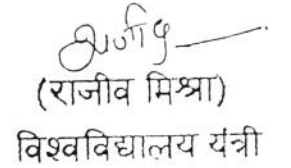 (राजीव मिश्रा)
विश्वविद्यालय यंत्री